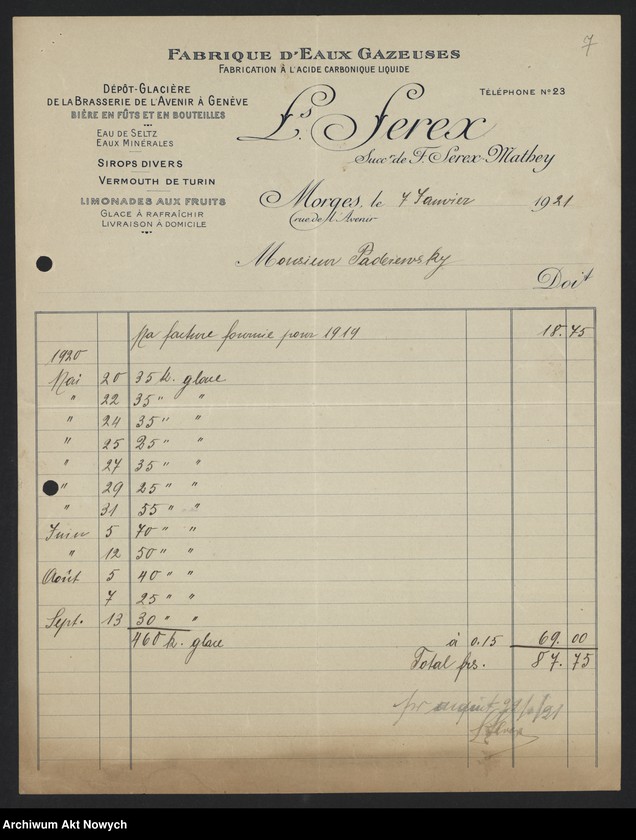 7
FABRIQUE D'EAUX GAZEUSES
FABRICATION À L'ACIDE CARBONIQUE LIQUIDE
DÉPÔT-GLACIÈRE
DE LA BRASSERIE DE L'AVENIR À GENÈVE
BIÈRE EN FÛTS ET EN BOUTEILLES
EAU DE SELTZ
EAUX MINÉRALES
SIROPS DIVERS
VERMOUTH DE TURIN
LIMONADES AUX FRUITS
GLACE À RAFRAÎCHIR
LIVRAISON À DOMICILE
TÉLÉPHONE Nº 23
Ls. Serex
Succr de F. Serex-Mathey
Morges, le 7 Janvier 1921
(rue de l'Avenir
Monsieur Paderewsky
Doit
Ma facture fournie pour 1919 18.75
1920
Mai 20 35 k. glace
" 22 35 " "
" 24 35 " "
" 25 25 " "
" 27 35 " "
" 29 25 " "
" 31 55 " "
Juin 5 70 " "
" 12 50 " "
Août 5 40 " "
7 25 " "
Sept. 13 30 " "
460 k. glace à 0.15 69.00
Total frs. 87.75
pr acquit
L. Serex
Archiwum Akt Nowych